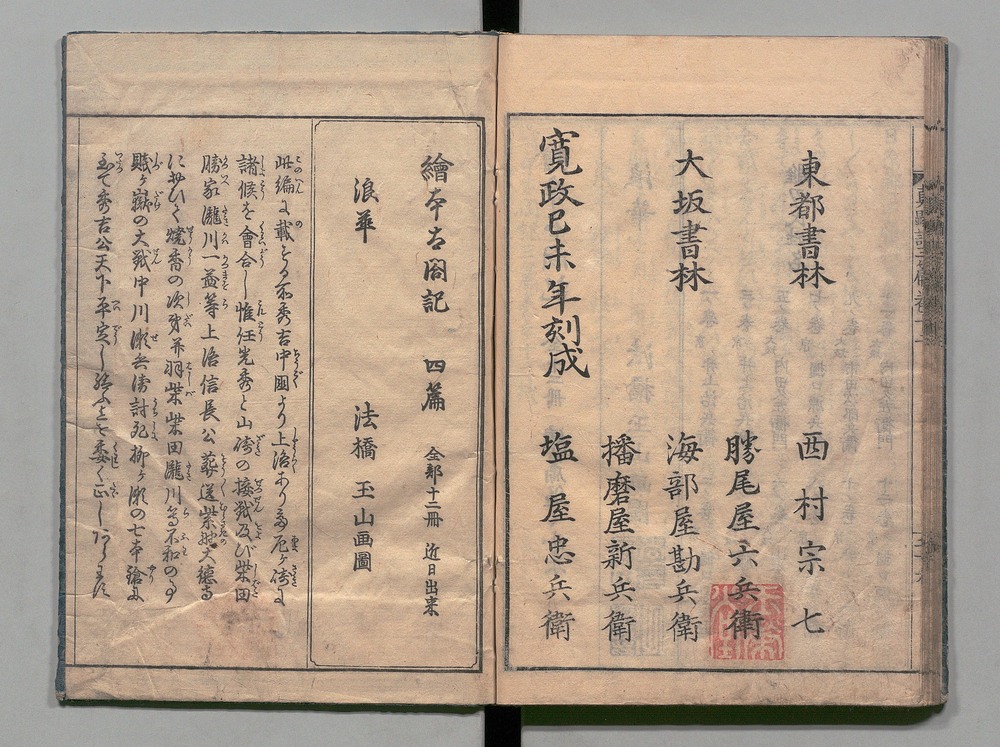 東都書林　西村宗七
勝尾屋六兵衛
大坂書林　海部屋勘兵衛
播磨屋新兵衛
寛政己未年刻成　塩屋忠兵衛
繪本太閤記　四篇　全部十二冊　近日出来
浪華　法橋玉山画圖
此編に載する所秀吉中國より上洛あり
諸候を會合し惟任光秀と山崎の接戦及び柴田
勝家瀧川一益等上洛信長公葬送紫野大徳寺
において焼香の次第并羽柴柴田瀧川等不和の事
賤ヶ嶽の大戦中川瀬兵衛討死柳ヶ瀬の七本鎗に
至て秀吉公天下平定し給ふまを委く正し